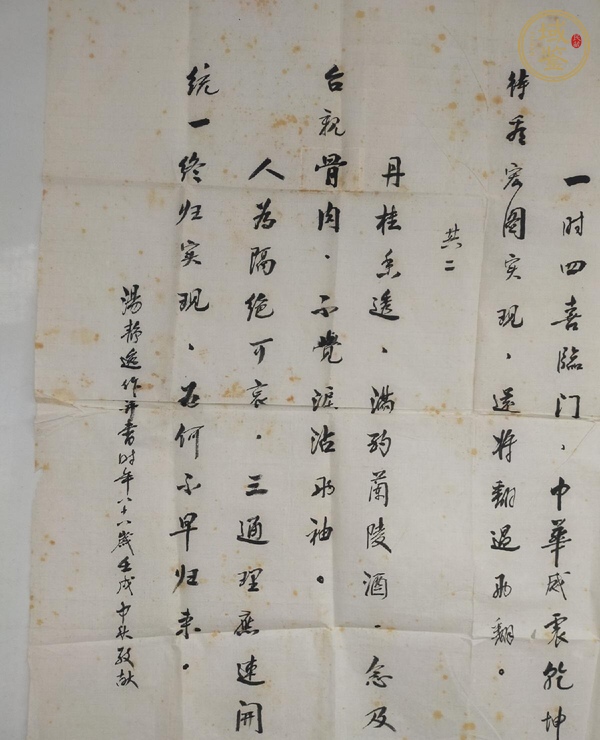 一时四喜臨门、中華威震乾坤
待看宏图实现、还将翻过两翻。
共二
丹桂香透、满酌蘭陵酒、念及
台親骨肉、不覺淚沾两袖。
人为隔绝可哀、三通理应速開
统一终归实现、为何不早归来。
湯靜逸作并書时年八十八歲壬戌中秋敬献